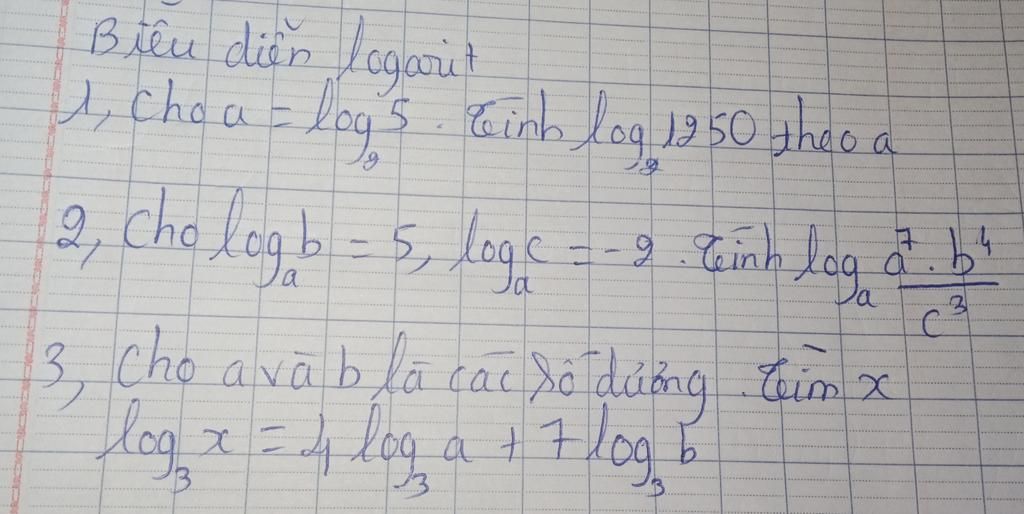 Biểu diễn logarit
1, Cho a = log₂5. Tính log₂1250 theo a
2, Cho logₐb = 5, logₐc = -2. Tính logₐ (a⁷.b⁴)/c³
3, Cho a và b là các số dương. Tìm x
log₃x = 4log₃a + 7log₃b